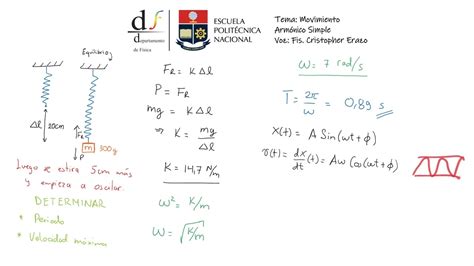 df
departamento
de Física
ESCUELA
POLITÉCNICA
NACIONAL
Tema: Movimiento
Armónico Simple
Voz: Fis. Cristopher Erazo
Equilibrio
Δl
20cm
F_R
m 300g
P
Luego se estira 5cm más
y empieza a oscilar.
DETERMINAR
* Periodo
* Velocidad máxima
F_R = K Δl
P = F_R
mg = K Δl
⇒ K = mg/Δl
K = 14,7 N/m
ω² = K/m
ω = √K/m
ω = 7 rad/s
T = 2π/ω = 0,89 s
X(t) = A Sin(ωt + ϕ)
v(t) = dx/dt (t) = Aω Cos(ωt + ϕ)